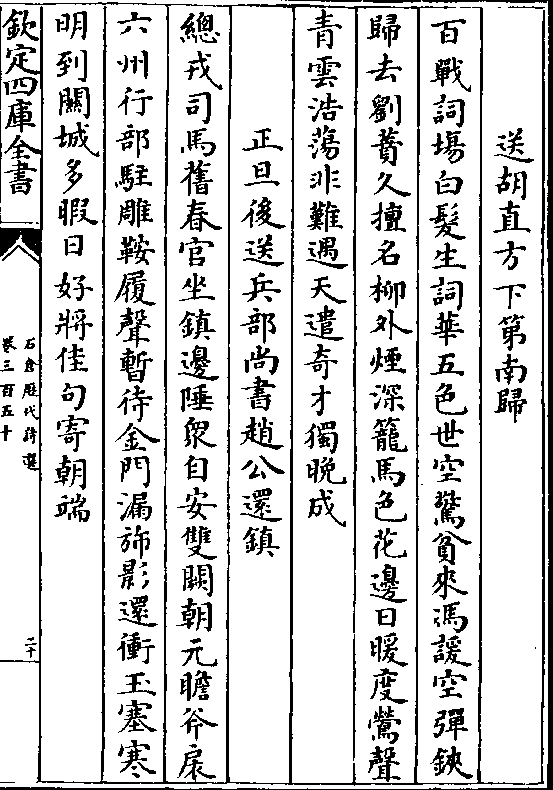 送胡直方下第南歸
百戰詞場白髮生詞華五色世空驚貧來馮諼空彈鋏
歸去劉蕡久擅名柳外煙深籠馬色花邊日暖度鶯聲
青雲浩蕩非難遇天遣奇才獨晚成
正旦後送兵部尚書趙公還鎮
總戎司馬舊春官坐鎮邊陲衆自安雙闕朝元瞻斧扆
六州行部駐雕鞍履聲暫待金門漏斾影還衝玉塞寒
明到關城多暇日好將佳句寄朝端
欽定四庫全書
石倉歷代詩選
卷三百五十
二十